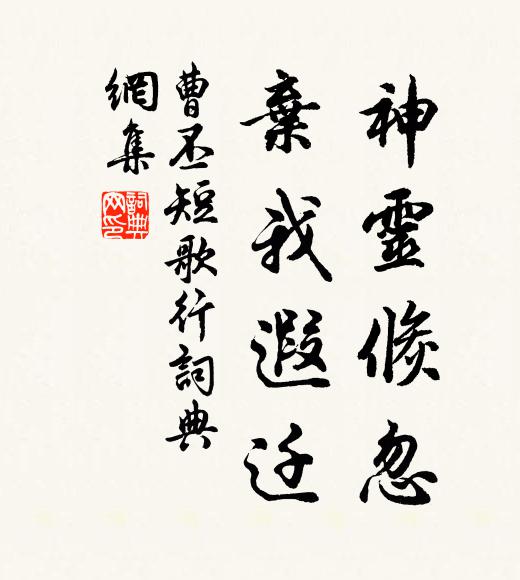 神靈倐忽
棄我遐迁
曹丕短歌行詞典
網集
詞典
网印